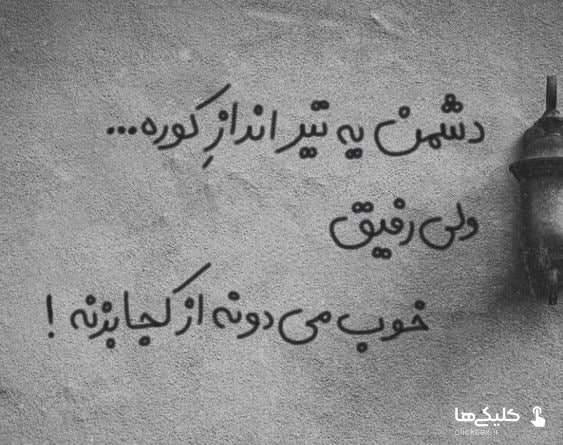 دشمن یه تیر اندازِ کوره...
ولی رفیق
خوب می دونه از کجا بزنه !
کلیکی‌ها
clickhaa.ir